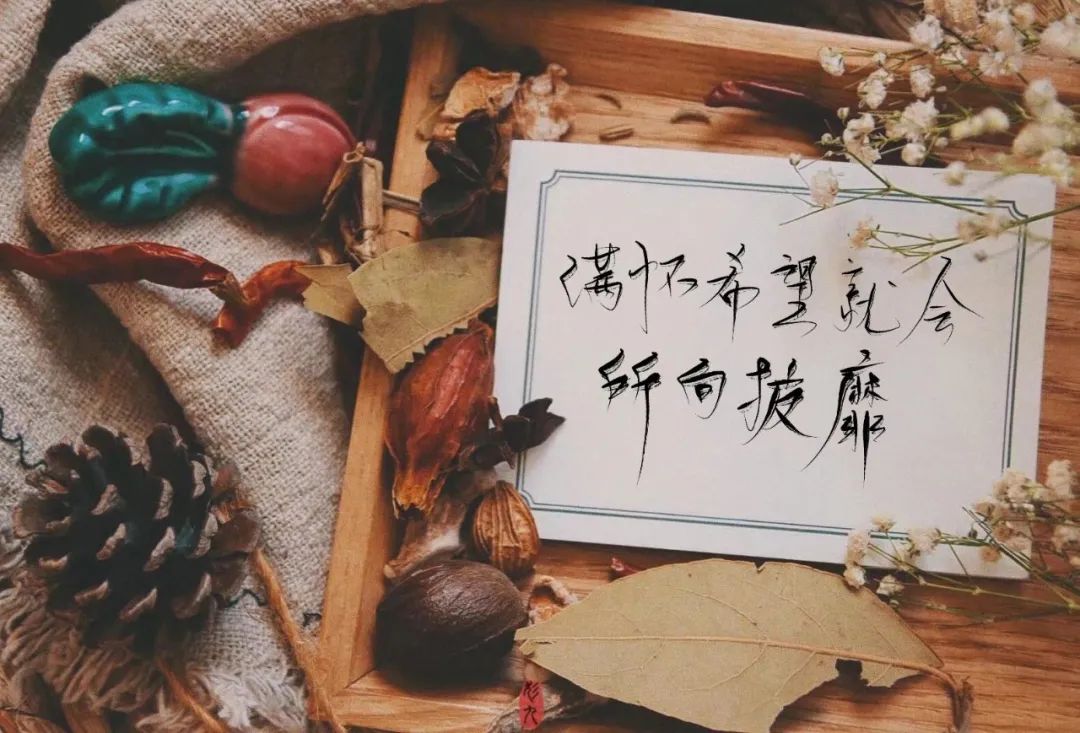 满怀希望就会
所向披靡